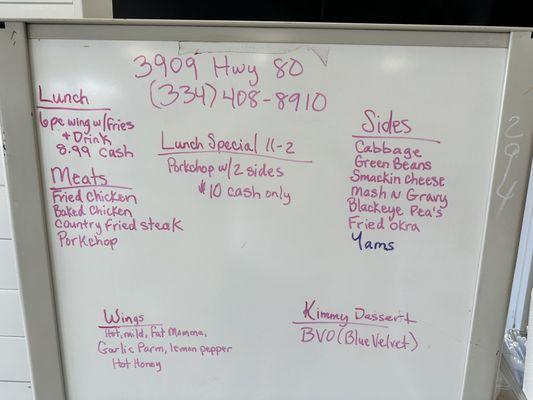 3909 Hwy 80
(334) 408-8910
Lunch
6pc wing w/fries
+ Drink
8.99 cash
Meats
Fried chicken
Baked chicken
country fried steak
Porkchop
Lunch Special 11-2
Porkchop w/2 sides
$10 cash only
Sides
Cabbage
Green Beans
Smackin cheese
Mash N Gravy
Blackeye Pea's
Fried okra
Yams
Wings
Hot, mild, Fat Momma,
Garlic Parm, lemon pepper
Hot Honey
Kimmy Dessert
BVO (Blue Velvet)
294